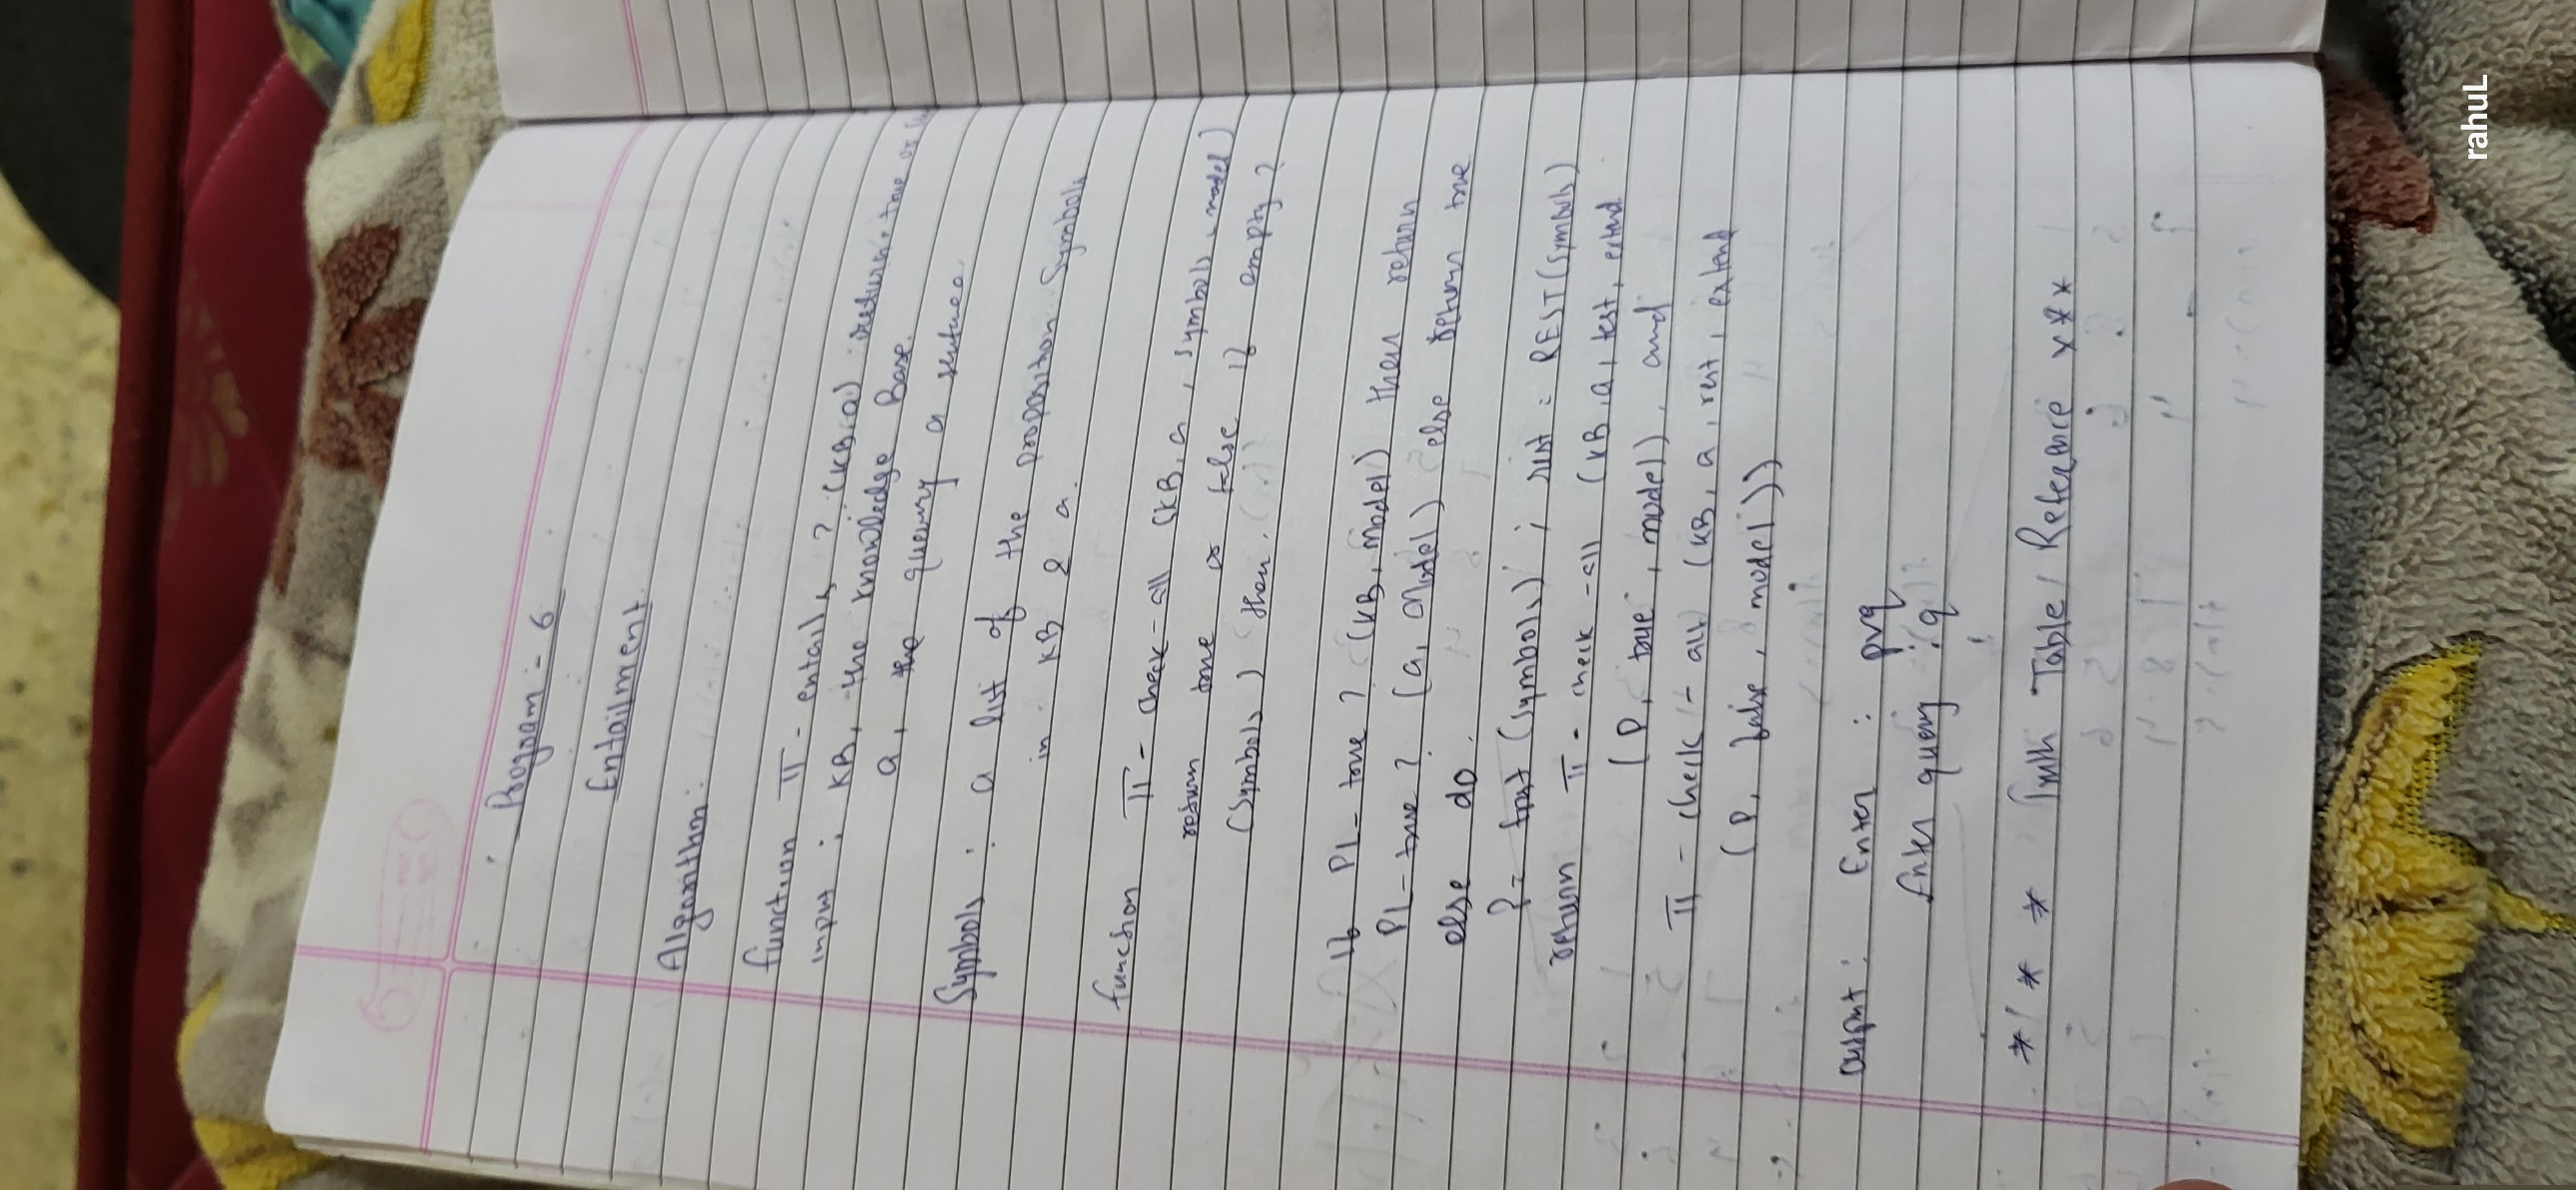 Program :- 6
Entailment
Algorithm:
function TT - entails ? (KB, a) : returns true or
input : KB, the knowledge Base.
a, the query a sentence.
Symbols : a list of the proposition Symbols
in KB & a.
function TT - check - all (KB, a, symbols, model)
return true or false if empty ?
(Symbols) then
if PL - true ? (KB, Model) then return
PL - true ? (a, Model) else return true
else do.
P = first (symbols) ; rest = REST (symbols)
return TT - check - all (KB, a, rest, extend
(P, true, model), and
TT - check - all (KB, a, rest, extend
(P, false, model))
Output : Enter : pvq
Enter query : q
* * * Truth Table / Reference * * *
rahuL